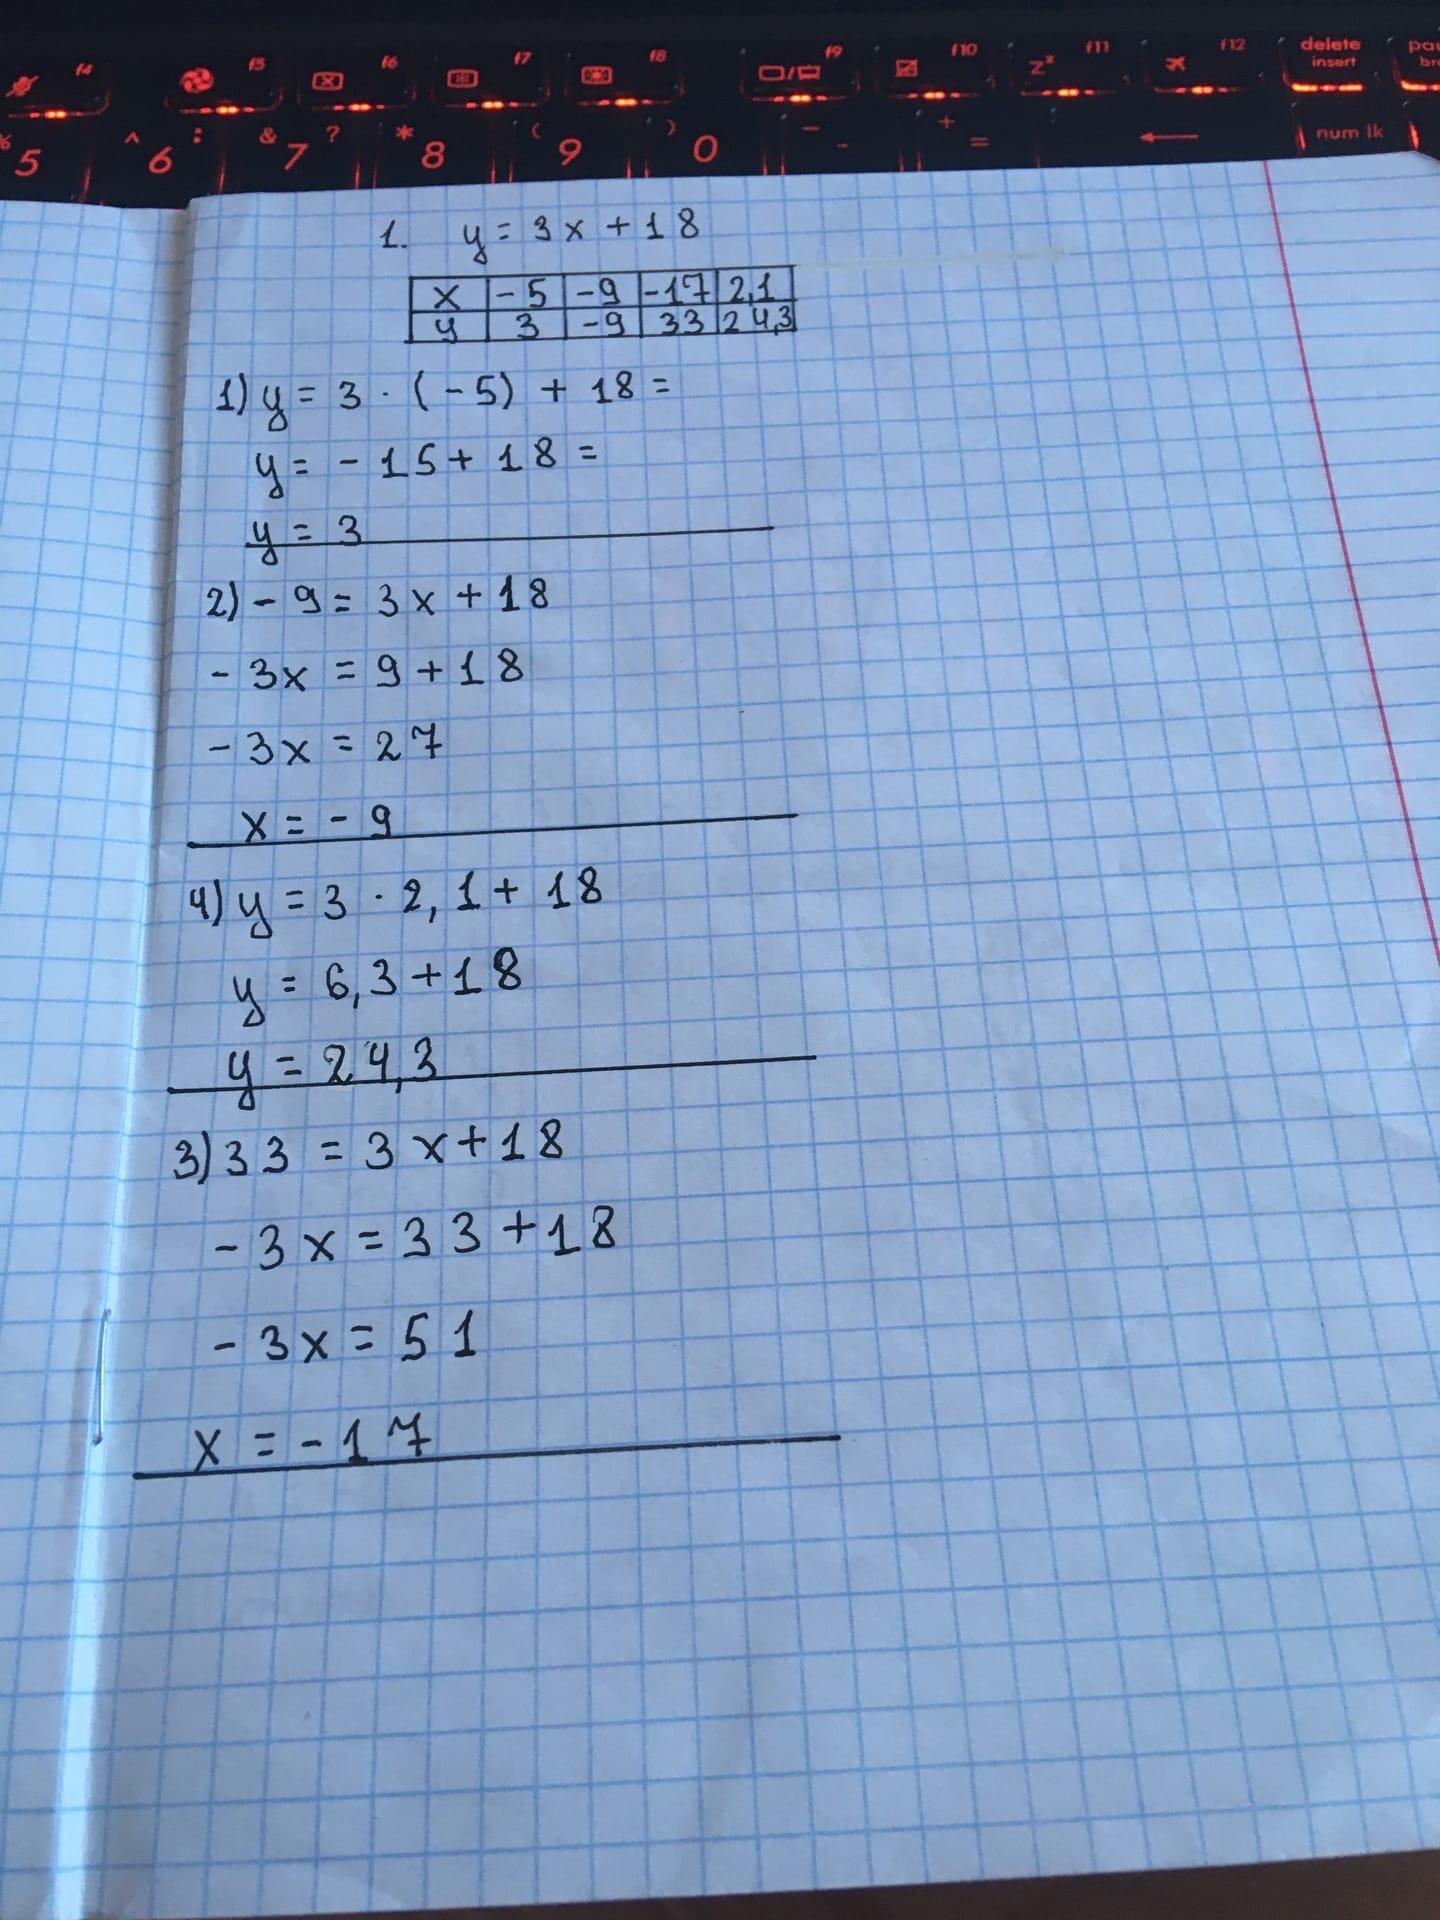 f4 f5 f6 f7 f8 f9 f10 f11 f12 delete
insert
% 5 ^ 6 : & 7 ? * 8 ( 9 ) 0 - + = num lk
1. y = 3x + 18
x -5 -9 -17 2,1
y 3 -9 33 24,3
1) y = 3 · (-5) + 18 =
y = -15 + 18 =
y = 3
2) -9 = 3x + 18
-3x = 9 + 18
-3x = 27
x = -9
4) y = 3 · 2,1 + 18
y = 6,3 + 18
y = 24,3
3) 33 = 3x + 18
-3x = 33 + 18
-3x = 51
x = -17